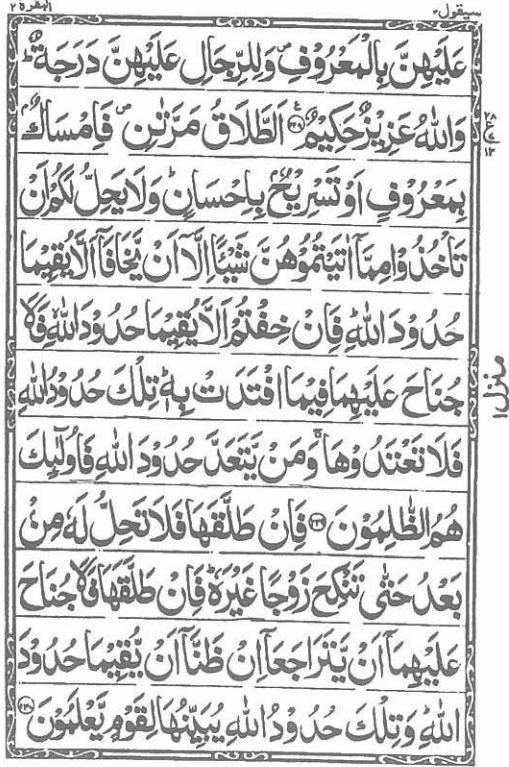 سيقول ٢
البقرة ٢
عَلَيْهِنَّ بِالْمَعْرُوْفِ ۪ وَلِلرِّجَالِ عَلَيْهِنَّ دَرَجَةٌ ؕ
وَاللّٰهُ عَزِيْزٌ حَكِيْمٌ ۟ ﴿۲۲۸﴾ اَلطَّلَاقُ مَرَّتٰنِ ۪ فَاِمْسَاكٌۢ
بِمَعْرُوْفٍ اَوْ تَسْرِيْحٌۢ بِاِحْسَانٍ ؕ وَلَا يَحِلُّ لَكُمْ اَنْ
تَاْخُذُوْا مِمَّاۤ اٰتَيْتُمُوْهُنَّ شَيْـًٔا اِلَّاۤ اَنْ يَّخَافَاۤ اَلَّا يُقِيْمَا
حُدُوْدَ اللّٰهِ ؕ فَاِنْ خِفْتُمْ اَلَّا يُقِيْمَا حُدُوْدَ اللّٰهِ ۙ فَلَا
جُنَاحَ عَلَيْهِمَا فِيْمَا افْتَدَتْ بِهٖ ؕ تِلْكَ حُدُوْدُ اللّٰهِ
فَلَا تَعْتَدُوْهَا ۚ وَمَنْ يَّتَعَدَّ حُدُوْدَ اللّٰهِ فَاُولٰٓئِكَ
هُمُ الظّٰلِمُوْنَ ﴿۲۲۹﴾ فَاِنْ طَلَّقَهَا فَلَا تَحِلُّ لَهٗ مِنْۢ
بَعْدُ حَتّٰى تَنْكِحَ زَوْجًا غَيْرَهٗ ؕ فَاِنْ طَلَّقَهَا فَلَا جُنَاحَ
عَلَيْهِمَاۤ اَنْ يَّتَرَاجَعَاۤ اِنْ ظَنَّاۤ اَنْ يُّقِيْمَا حُدُوْدَ
اللّٰهِ ؕ وَتِلْكَ حُدُوْدُ اللّٰهِ يُبَيِّنُهَا لِقَوْمٍ يَّعْلَمُوْنَ ﴿۲۳۰﴾
۲۸
ع
۱۲
منزل ۱